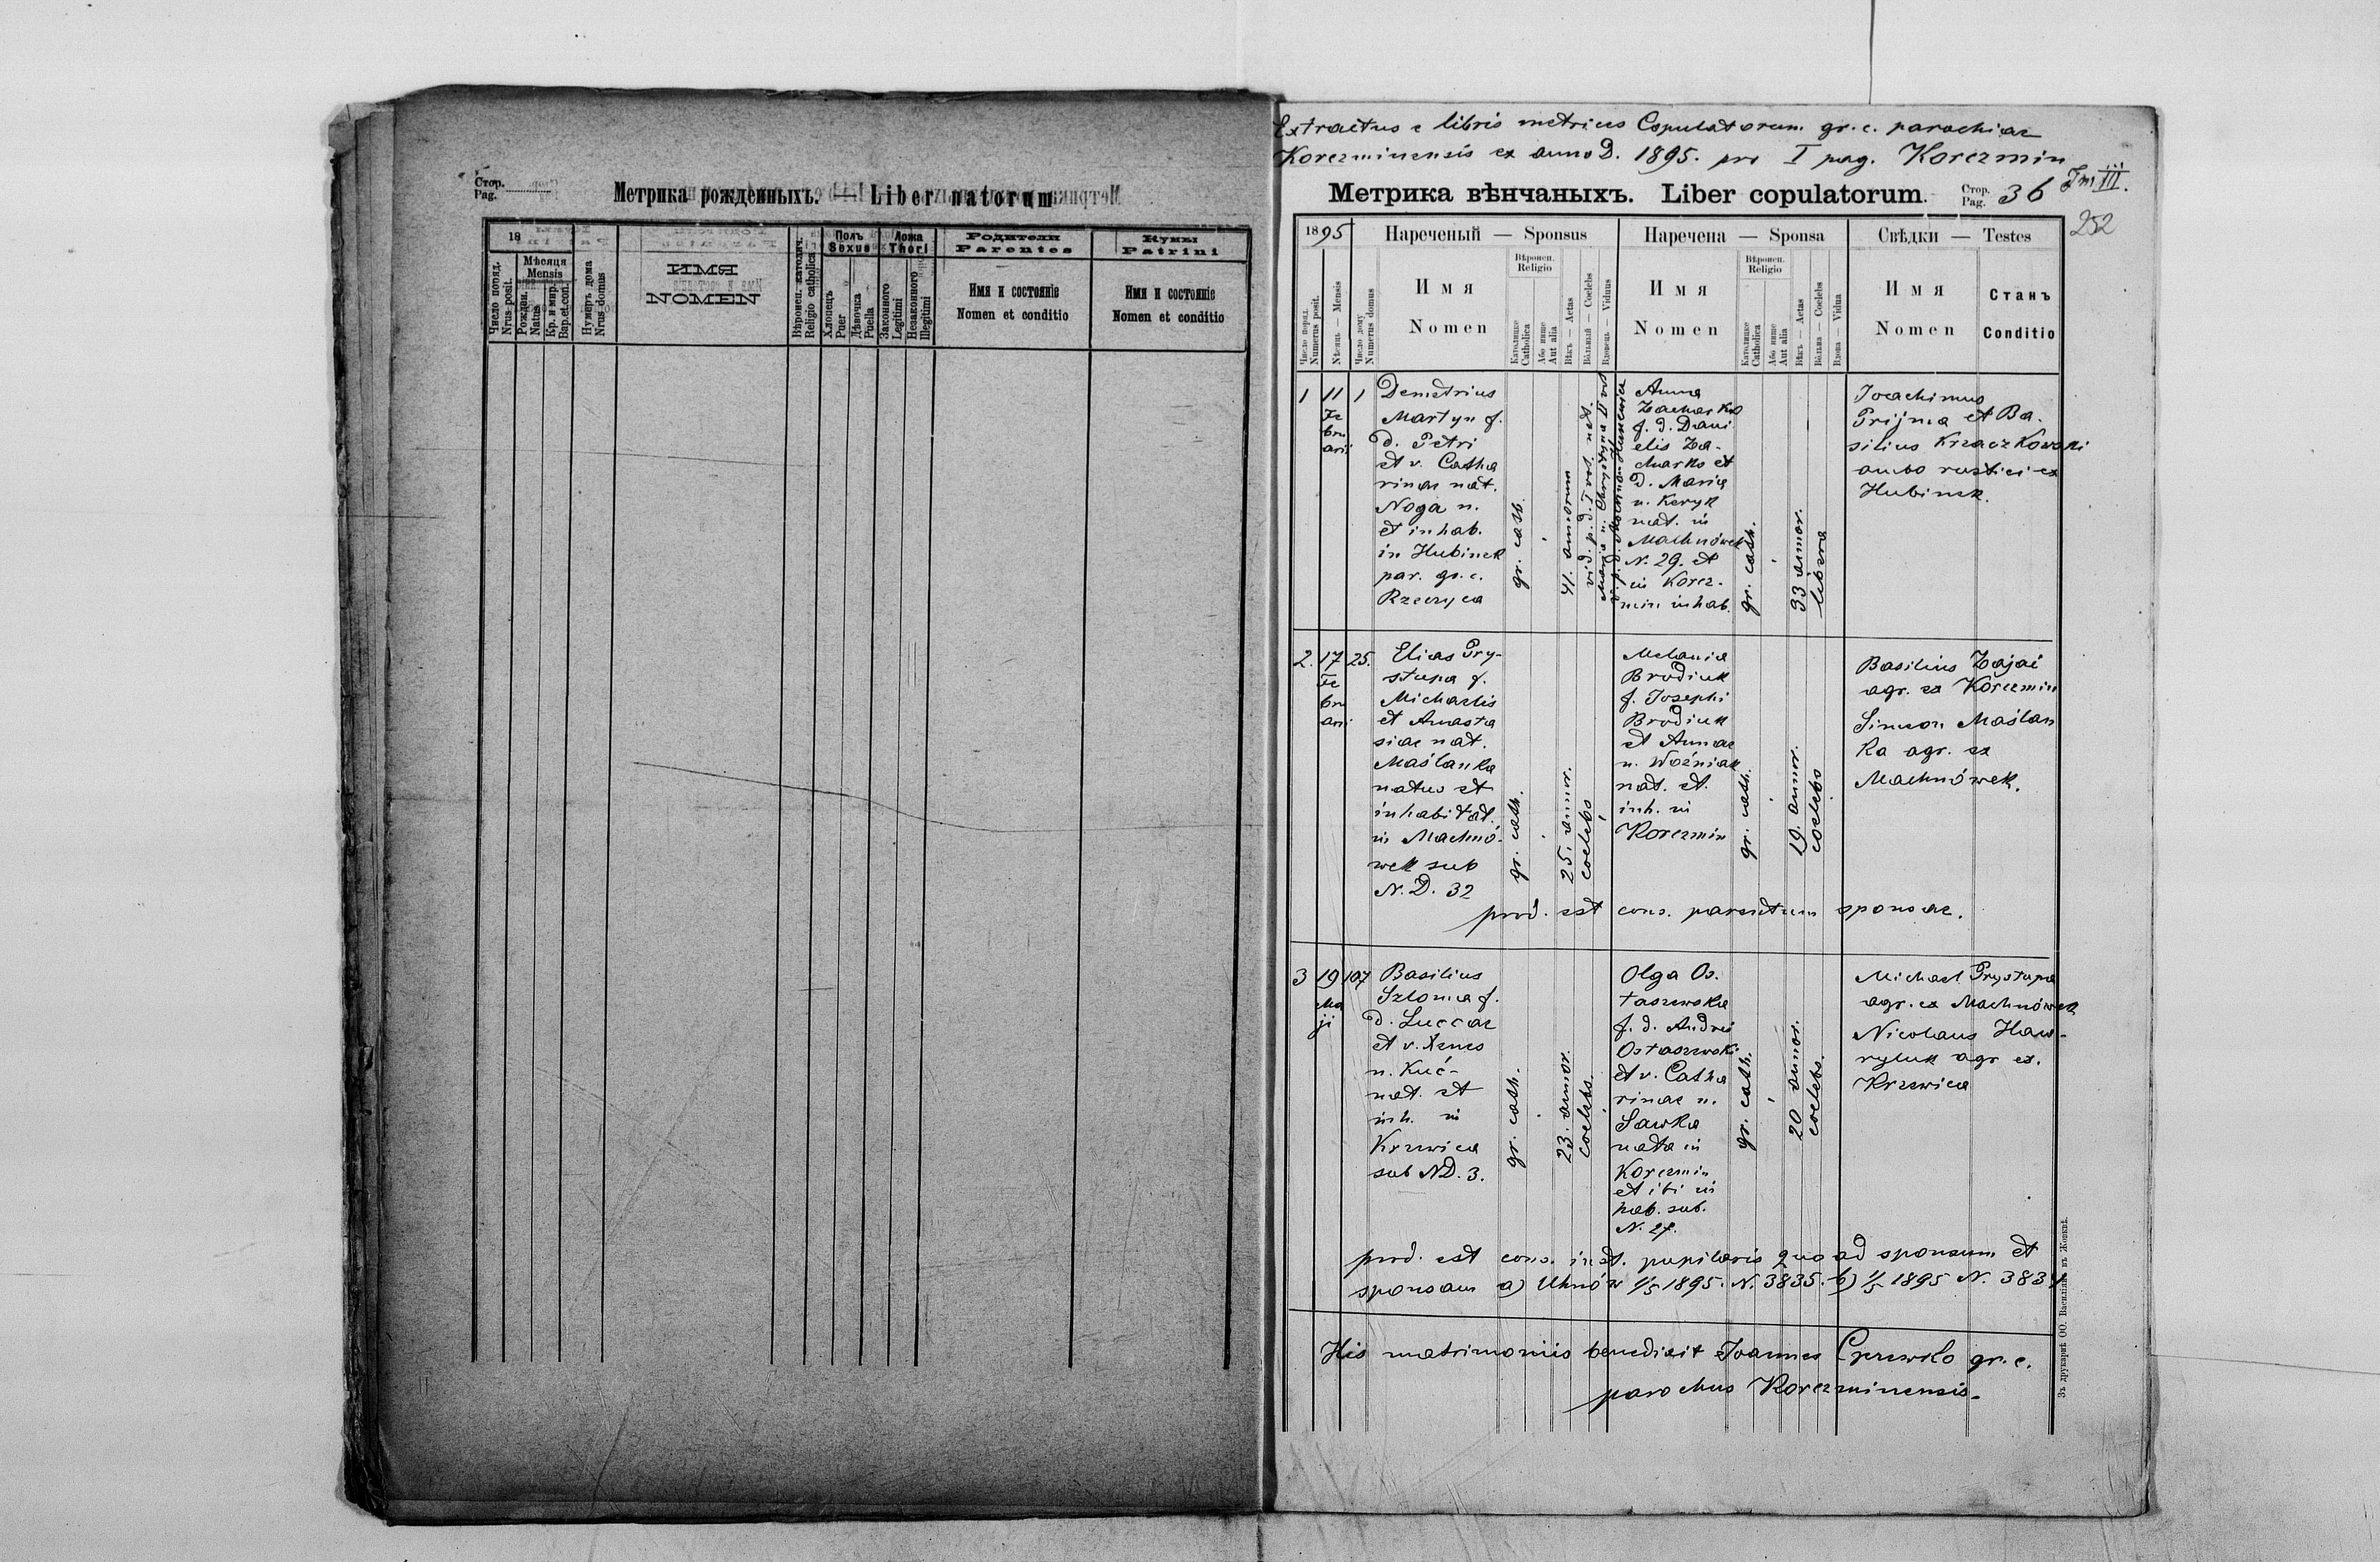 Стор.
Pag.
Метрика рожденныхъ. — Liber natorum
18
Число поряд.
Nrus posit.
Мѣсяця
Mensis
Рождан.
Natus
Кр. и мир.
Bap. et con.
Нумеръ дома
Nrus domus
ИМЯ
NOMEN
Вѣроисп. католич.
Religio catholica
Полъ
Sexus
Хлопецъ
Puer
Дѣвочка
Puella
Ложа
Thori
Законного
Legitimi
Незаконного
Illegitimi
Родители
Parentes
Имя и состояніе
Nomen et conditio
Кумы
Patrini
Имя и состояніе
Nomen et conditio
Extractus e libris metrices Copulatorum gr. c. parochiae
Korczminensis ex anno D. 1895. pro I pag. Korczmin
Метрика вѣнчаныхъ. Liber copulatorum.
Стор.
Pag.
36
Tm III.
252
1895
Нареченый — Sponsus
Наречена — Sponsa
Свѣдки — Testes
Число поряд.
Numerus posit.
Мѣсяць — Mensis
Число дому
Numerus domus
Имя
Nomen
Вѣроисп.
Religio
Католицке
Catholica
Або инше
Aut alia
Вѣкъ — Aetas
Вôльный — Coelebs
Вдовець — Viduus
Имя
Nomen
Вѣроисп.
Religio
Католицке
Catholica
Або инше
Aut alia
Вѣкъ — Aetas
Вôльна — Coelebs
Вдова — Vidua
Имя
Nomen
Станъ
Conditio
1
11
Fe
bru
arii
1
Demetrius
Martyn f.
d. Petri
et v. Catha
rinae nat.
Noga n.
et inhab.
in Hubinek
par. gr. c.
Rzeczyca
gr. cath.
41. annorum
vid. p. d. I vot. nat.
Anna
Zacharko
f. d. Dani
elis Za-
charko et
d. Maria
n. Keryk
nat. in
Machnówek
N. 29. et
in Korcz-
min inhab.
gr. cath.
33 annor.
libera
Joachimus
Prijma et Ba-
silius Kraczkowski
ambo rustici ex
Hubinek.
2.
17
Fe
bru
arii
25.
Elias Pry-
stupa f.
Michaelis
et Anasta
siae nat.
Maślanka
natus et
inhabitat.
in Machnó-
wek sub
N. D. 32
gr. cath.
25. annor.
coelebs
Melania
Brodiuk
f. Josephi
Brodiuk
et Annae
n. Woźniak
nat. et.
inh. in
Korczmin
gr. cath.
19. annor.
coelebs
Basilius Zajac
agr. ex Korczmin
Simeon Maślan
ka agr. ex
Machnówek.
prod. est cons. parentum sponsae.
3
19
Ma
ji
107
Basilius
Szloma f.
d. Luccae
et v. Xenes
n. Kuć-
nat. et
inh. in
Krzewica
sub ND. 3.
gr. cath.
23. annor.
coelebs.
Olga Os-
taszewska
f. d. Andrei
Ostaszewski
et v. Catha
rinae n.
Sawka
nata in
Korczmin
et ibi in
hab. sub.
N. 27.
gr. cath.
20 annor.
coelebs.
Michael Prystupa
agr. ex Machnówek
Nicolaus Haw-
ryluk agr ex.
Krzewica
prod. est cons. inst. pupilaris quoad sponsum et
sponsam a) Uhnów 1/5 1895. N. 3835. b) 1/5 1895 N. 3834
His matrimoniis benedixit Joannes gr. c.
parochus Korczminensis.
Зъ друкарнѣ ОО. Василіянъ въ Жовквѣ.